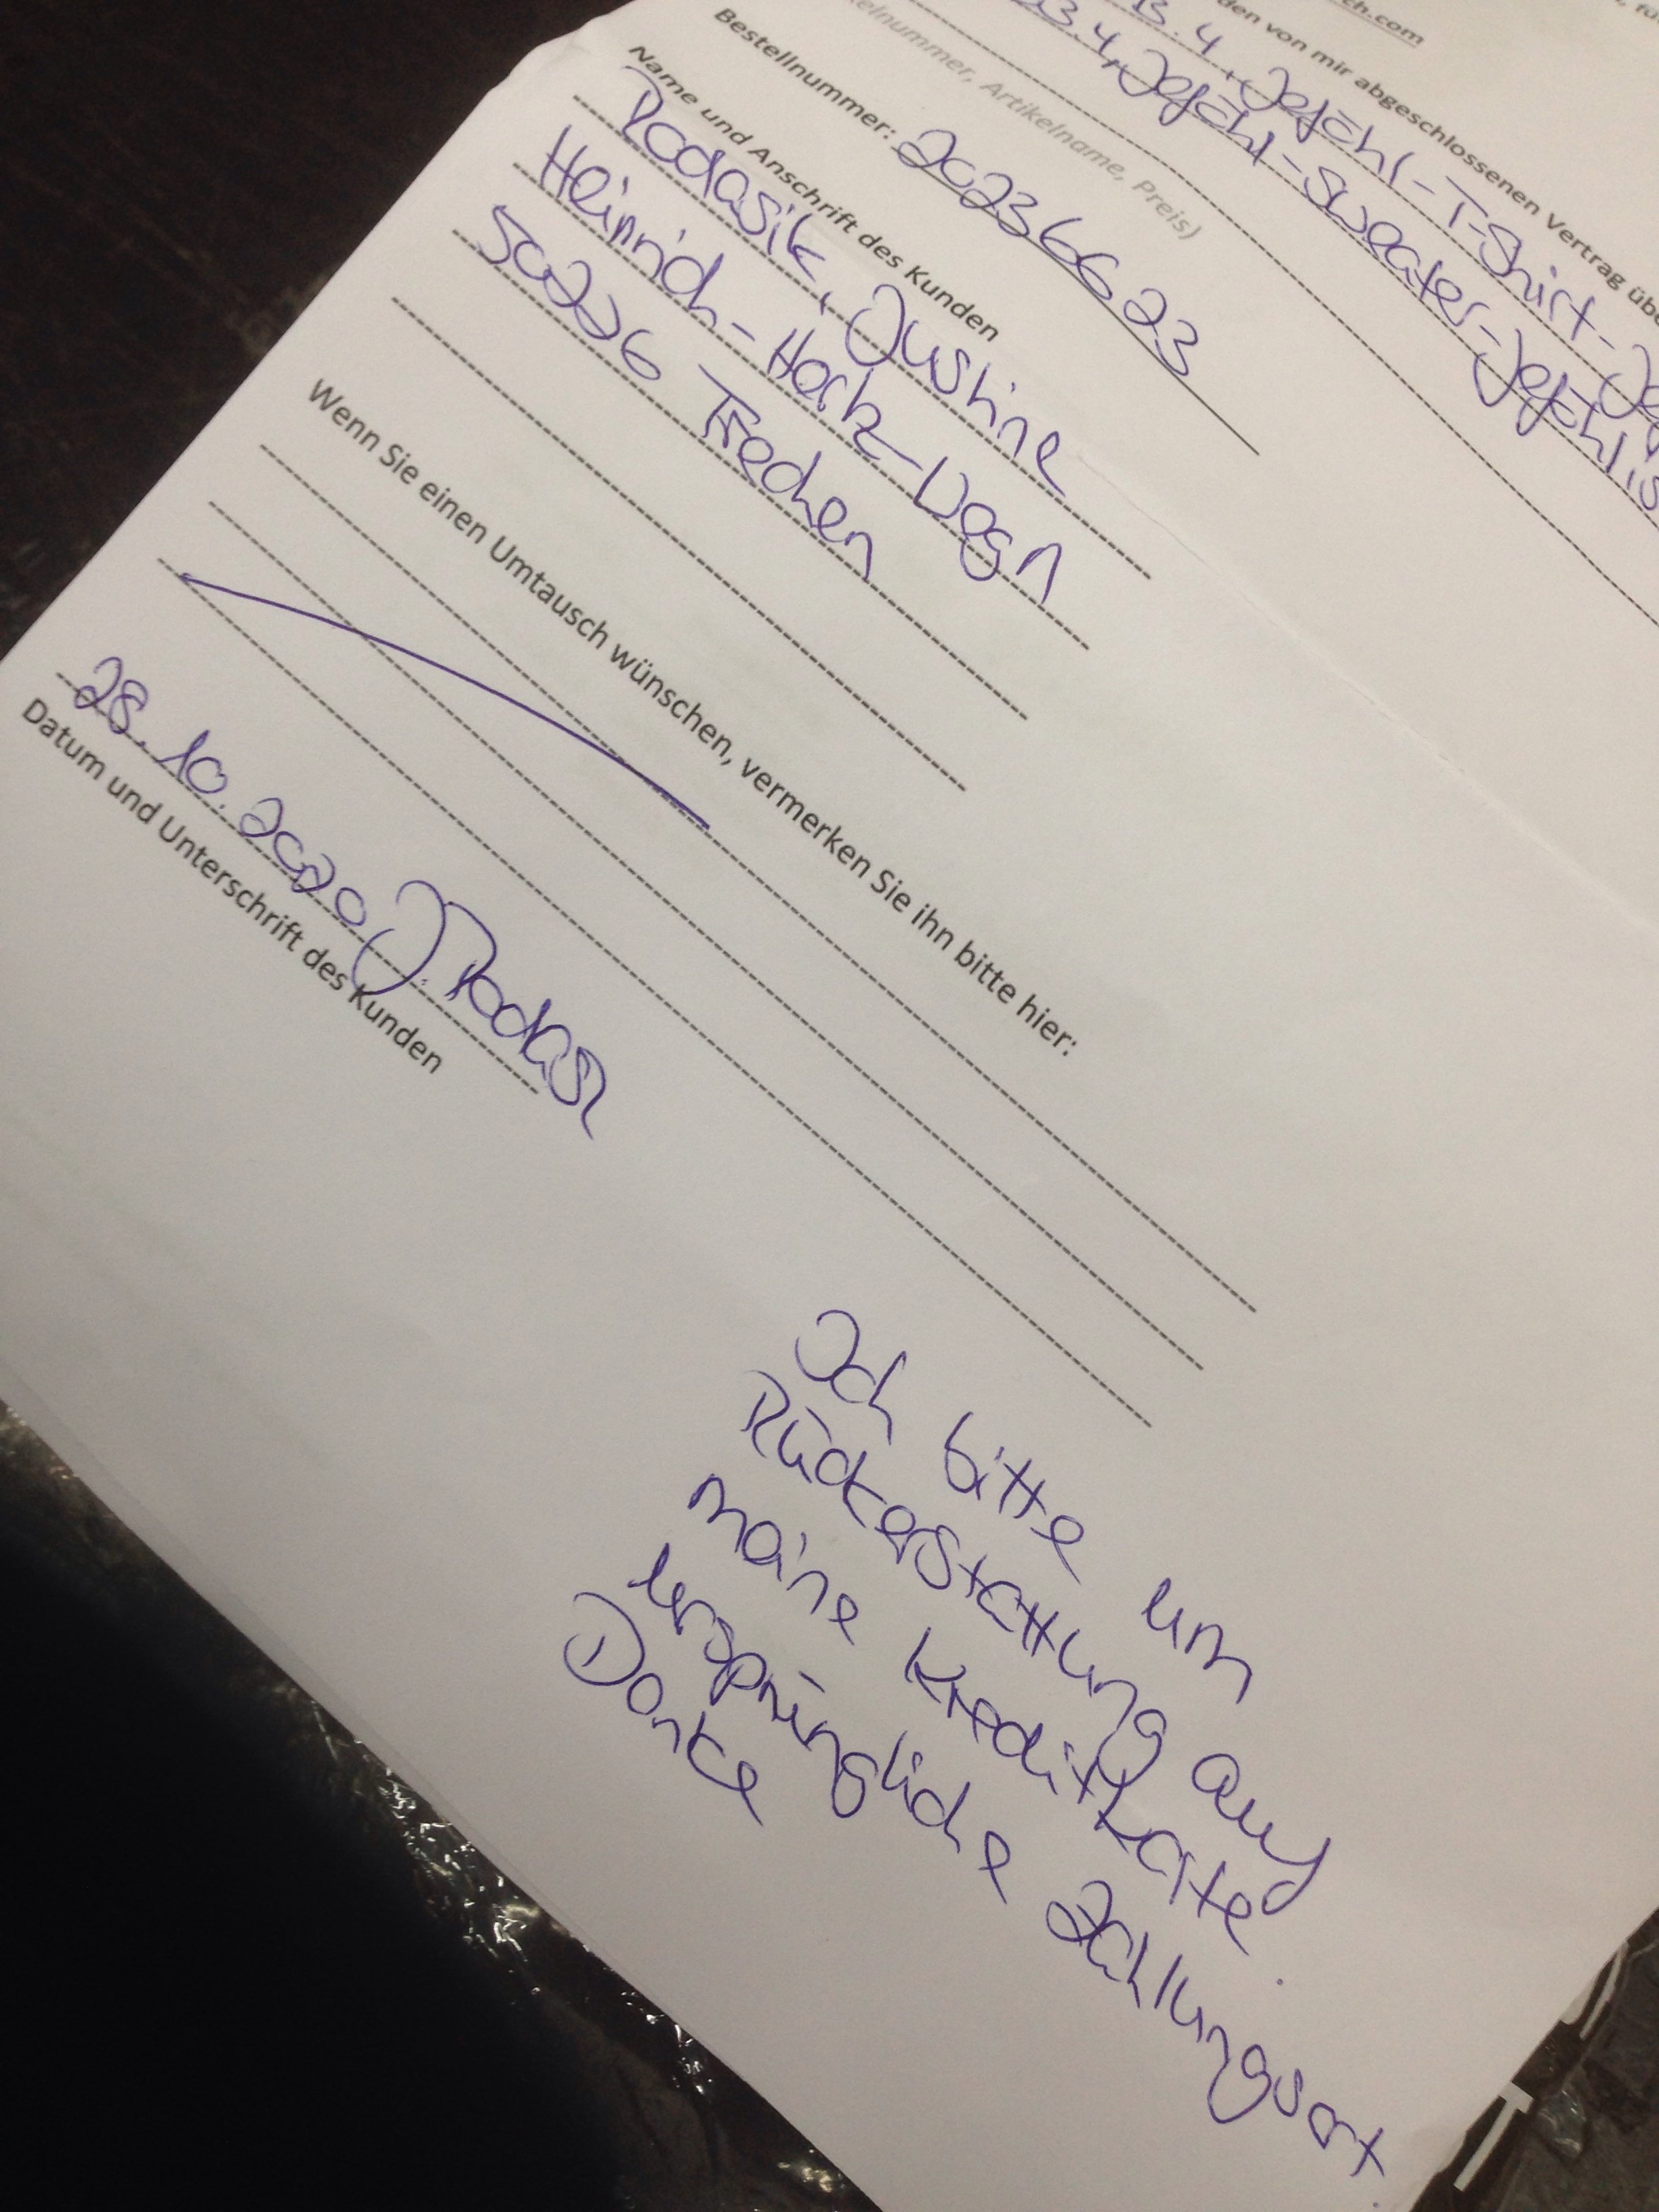 ch.com
den von mir abgeschlossenen Vertrag übe
B. 4, Jefühl-T-Shirt-Je
B. 4, Jefühl-Sweater-Jefühl is
elnummer, Artikelname, Preis)
Bestellnummer: 202366623
Name und Anschrift des Kunden
Podasik, Justine
Heinrich-Hertz-Weg 1
50226 Frechen
Wenn Sie einen Umtausch wünschen, vermerken Sie ihn bitte hier:
28.10.2020 J. Podasi
Datum und Unterschrift des Kunden
Ich bitte um
Rückerstattung auf
meine Kreditkarte.
ursprüngliche Zahlungsart
Danke